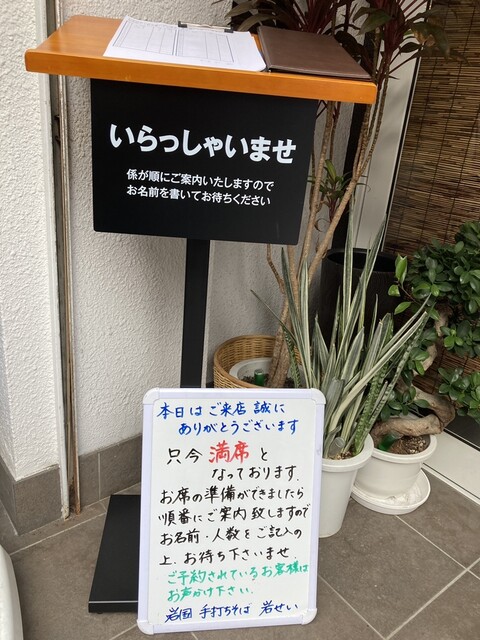 いらっしゃいませ
係が順にご案内いたしますので
お名前を書いてお待ちください
本日は ご来店 誠に
ありがとうございます
只今 満席 と
なっております.
お席の準備ができましたら
順番にご案内 致しますので
お名前・人数 を ご記入の
上、お待ち下さいませ
ご予約されているお客様は
お声かけ下さい.
岩国 手打ちそば 岩せい